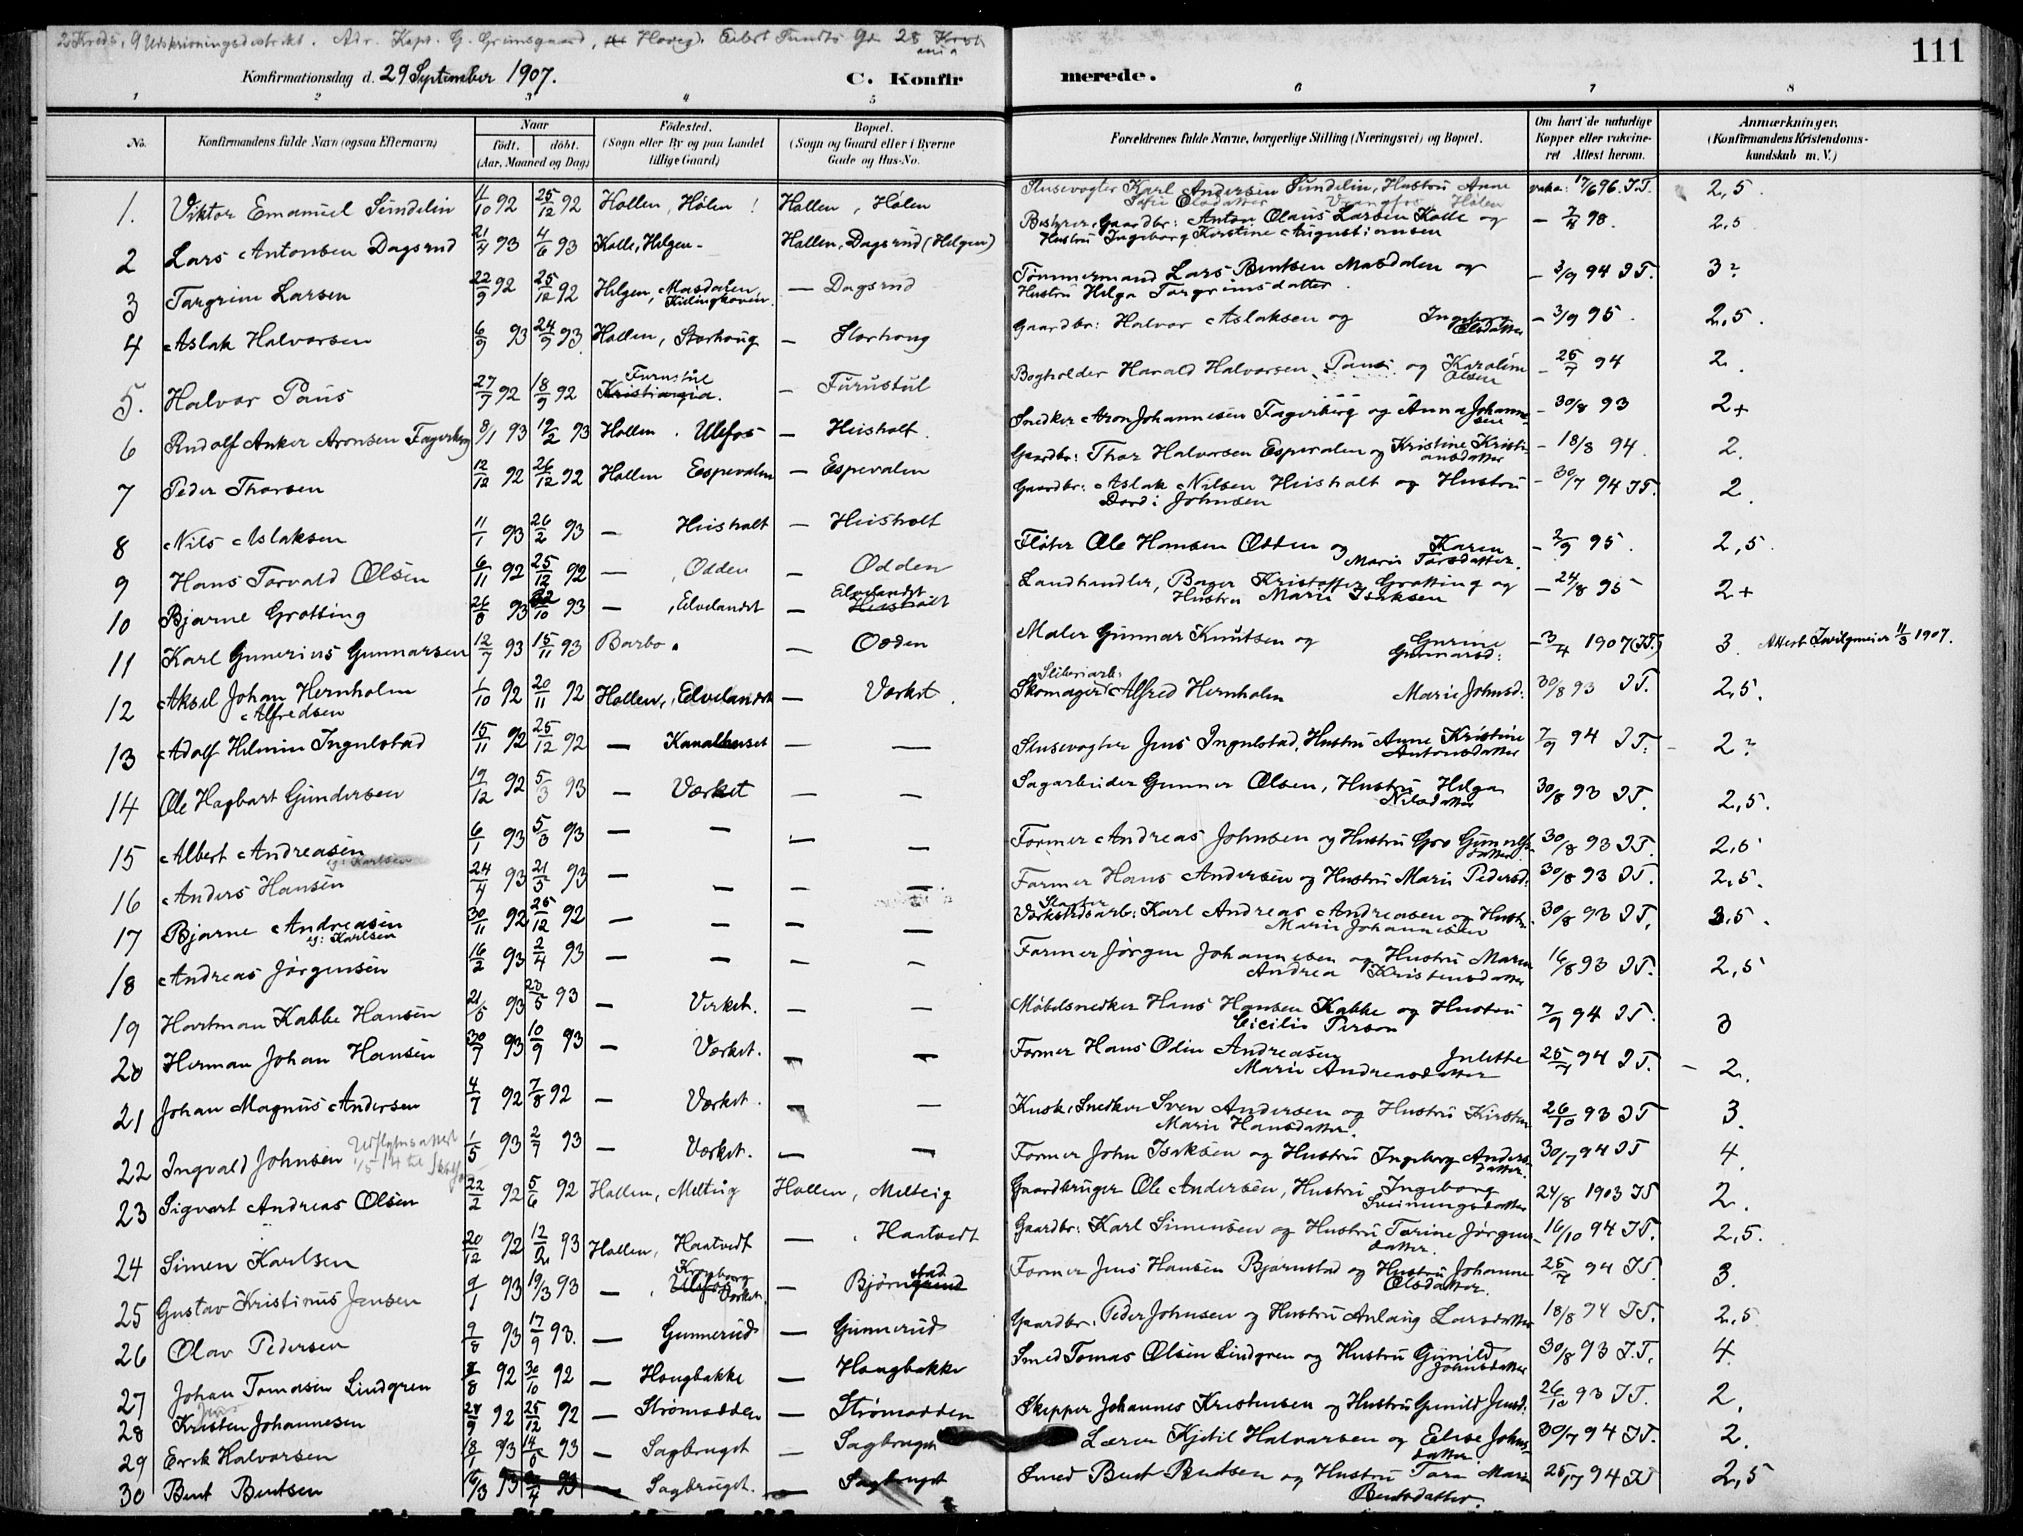 2 Kreds, 9 Udskrivningsdistrikt. Adr. Kapt. G. Grimsgaard, Hoveg. Eilert Sundts Gd. 28 Kristiania
111
Konfirmationsdag d. 29 September 1907.
C. Konfirmerede.
1 2 3 4 5 6 7 8
No. Konfirmandens fulde Navn (ogsaa Efternavn) Naar født. døbt. (Aar, Maaned og Dag) Fødested. (Sogn eller By og paa Landet tillige Gaard) Bopæl. (Sogn og Gaard eller i Byerne Gade og Hus-No. Forældrenes fulde Navne, borgerlige Stilling (Næringsvei) og Bopæl. Om havt de naturlige Kopper eller vakcineret Attest herom. Anmærkninger. (Konfirmandens Kristendomskundskab m. V.)
1. Viktor Emanuel Sundelin 4/10 92 25/12 92 Hollen, Hølen Hollen, Hølen Slusevogter Karl Andersen Sundelin, Hustru Anne Olsdatter Vrangfos, Hølen vakc: 17/6 96. I.T. 2,5.
2 Lars Antonsen Dagsrud 21/4 93 4/6 93 Kolle, Helgen Hollen, Dagsrud (Helgen) Bestyrer, Gaardbr: Anton Olaus Larsen Kolle og Hustru Ingeborg Kirstine Augustiansen 98. 2,5
3 Targrim Larsen 22/9 92 25/12 92 Helgen, Masdalen, — Dagsrud Tømmermand Lars Bentsen Masdalen og Hustru Helga Torgrimsdatter — 3/9 94 I T. 3?
4 Aslak Halvorsen 6/9 93 24/9 93 Hollen, Storhoug — Storhoug Gaardbr: Halvor Aslaksen og Ingeborg Olsdatter — 3/9 95. 2,5.
5. Halvor Paus 27/7 92 18/9 92 Furustul Kristiania. — Furustul Bogholder Harald Halvorsen Paus og Karoline Olsen — 25/7 94 2
6 Rudolf Anker Aronsen Fagerberg 8/1 93 19/2 93 Hollen. Ulefos — Heisholt. Snedker Aron Johannesen Fagerberg og Anna Johannesen — 30/8 93 2+
7 Peder Thorsen 12/12 92 26/12 92 Hollen Espevalen — Espevalen Gaardbr: Thor Halvorsen Espevalen og Kristine Kristiansdatter — 18/8 94. 2.
8 Nils Aslaksen 11/1 93 26/2 93 — Heisholt — Heisholt Gaardbr: Aslak Nilsen Heisholt og Hustru Johnsen — 30/7 94 I T. 2
9 Hans Torvald Olsen 6/11 92 25/12 92 — Odden — Odden Fløter Ole Hansen Odden og Karen Marie Tarsdatter. — 2/9 95. 2,5.
10 Bjarne Grotting 26/8 93 22/10 93 — Eidelandet — Eidelandet Heisholt Landhandler, Kristoffer Grotting og Hustru Marie Isaksen — 24/8 95 2+
11 Karl Gunerius Gunnarsen 12/7 93 15/11 93 Barbo. — Odden Maler Gunnar Knutsen og Gurine Gunnarsd: — 3/4 1907 (I T.) 3. Attest 11/3 1907.
12 Aksel Johan Hernholm Alfredsen 1/10 92 20/11 92 Hollen, Eidelandet — Værket. Støberiarb. Skomager Alfred Hernholm Marie Johnsd: 30/8 93 I T. 2,5.
13 Adolf Helmin Ingulstad 15/11 92 25/12 92 — Kanalhuset — — Slusevogter Jens Ingulstad, Hustru Anne Kristine Antonsdatter 7/9 94 I T. 2?
14 Ole Hagbart Gundersen 19/12 92 5/3 93 — Værket — — Sagarbeider Gunner Olsen, Hustru Helga Nilsdatter 30/8 93 I T. 2,5.
15 Albert Andreasen 6/1 93 5/3 93 — — — — Former Andreas Johnsen og Hustru Gro 30/8 93 I T. 2,5
16 Anders Hansen 24/4 93 21/5 93 — — — — Former Hans Andersen og Hustru Marie Pedersd: 30/8 93 I T. 2,5.
17 Bjarne Andreasen eg: Karlsen 30/11 92 25/12 92 — — — — Værkstedsarb: Karl Andreas Andreasen og Hustr. Marie Johannesen 30/8 93 I T. 3,5.
18 Andreas Jørgensen 16/2 93 2/4 93 — — — — Former Jørgen Johannesen og Hustru Maren Andrea Kristensdatter 16/8 93 I T. 2,5
19 Hartman Kabbe Hansen 21/5 93 28/5 93 — Værket. — — Møbelsnedker Hans Hansen Kabbe og Hustru Cicilie Person 7/9 94 I T. 3
20 Herman Johan Hansen 30/7 93 10/9 93 — Værket. — — Former Hans Odin Andreasen Julette Marie Andreasdatter 25/7 94 I T. — 2.
21 Johan Magnus Andersen 4/7 92 7/8 92 — Værket. — — Kusk, Snedker Sven Andersen og Hustru Kirsten Marie Hansdatter. 26/10 93 I T 3.
22 Ingvald Johnsen Udflytnsattest 1/5 93 2/7 93 — Værket. — — Former John Isaksen og Hustru Ingeborg Andersdatter 30/7 94 I T 4.
23 Sigvart Andreas Olsen 22/2 92 5/6 92 Hollen, Melteig Hollen, Melteig Gaardbruger Ole Andersen, Hustru Ingeborg Sveinungsdatter 24/8 1903 I T 2.
24 Simen Karlsen 20/12 92 12/2 93 Hollen, Haatvedt — Haatvedt Gaardbr: Karl Simensen og Hustru Torine Jørgensdatter. 16/10 94 I T. 2,5.
25 Gustav Kristinus Jensen 9/1 93 19/3 93 — Kronborg Ulefos Værket. — Bjørnstad Former Jens Hansen Bjørnstad og Hustru Johanne Olsdatter. 25/7 94 I T. 3.
26 Olav Pedersen 9/8 93 17/9 93. — Gunnerud — Gunnerud Gaardbr. Peder Johnsen og Hustru Anlaug Larsdatter 18/8 94 I T. 2,5
27 Johan Tomasen Lindgren 8/8 92 30/10 92 — Hougbakke — Hougbakke Smed Tomas Olsen Lindgren og Hustru Gunild Johnsdatter 30/8 93 I.T. 4.
28 Jens Kristen Johannesen 24/9 92 25/12 92 — Strømodden — Strømodden Skipper Johannes Kristensen og Hustru Gunild Jensd. 26/10 93 I T. 2.
29 Erik Halvorsen 13/1 93 14/5 93 — Sagbruget — Sagbruget Lærer Kjetil Halvorsen og Elise Johnsdatter 30/7 94 I T. 2.
30 Bent Bentsen 6/3 93 — Sagbruget. — Sagbruget Smed Bent Bentsen og Hustru Tora Marie Bentsdatter. 25/7 94 I T 2,5